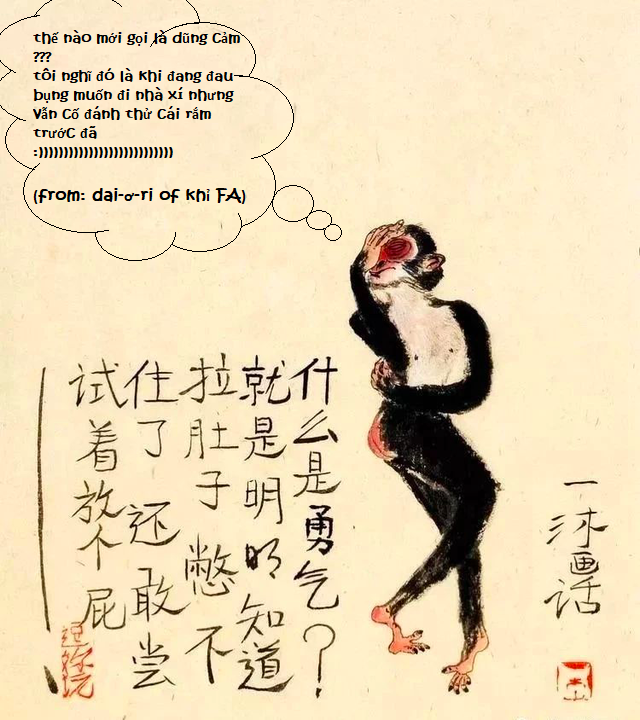 thế nào mới gọi là dũng cảm
???
tôi nghĩ đó là khi đang đau
bụng muốn đi nhà xí nhưng
vẫn cố đánh thử cái rắm
trước đã
:)))))))))))))))))))))))))))
(from: dai-ơ-ri of khỉ FA)
什么是勇气？
就是明明知道
拉肚子憋不
住了还敢尝
试着放个屁
一沐画话